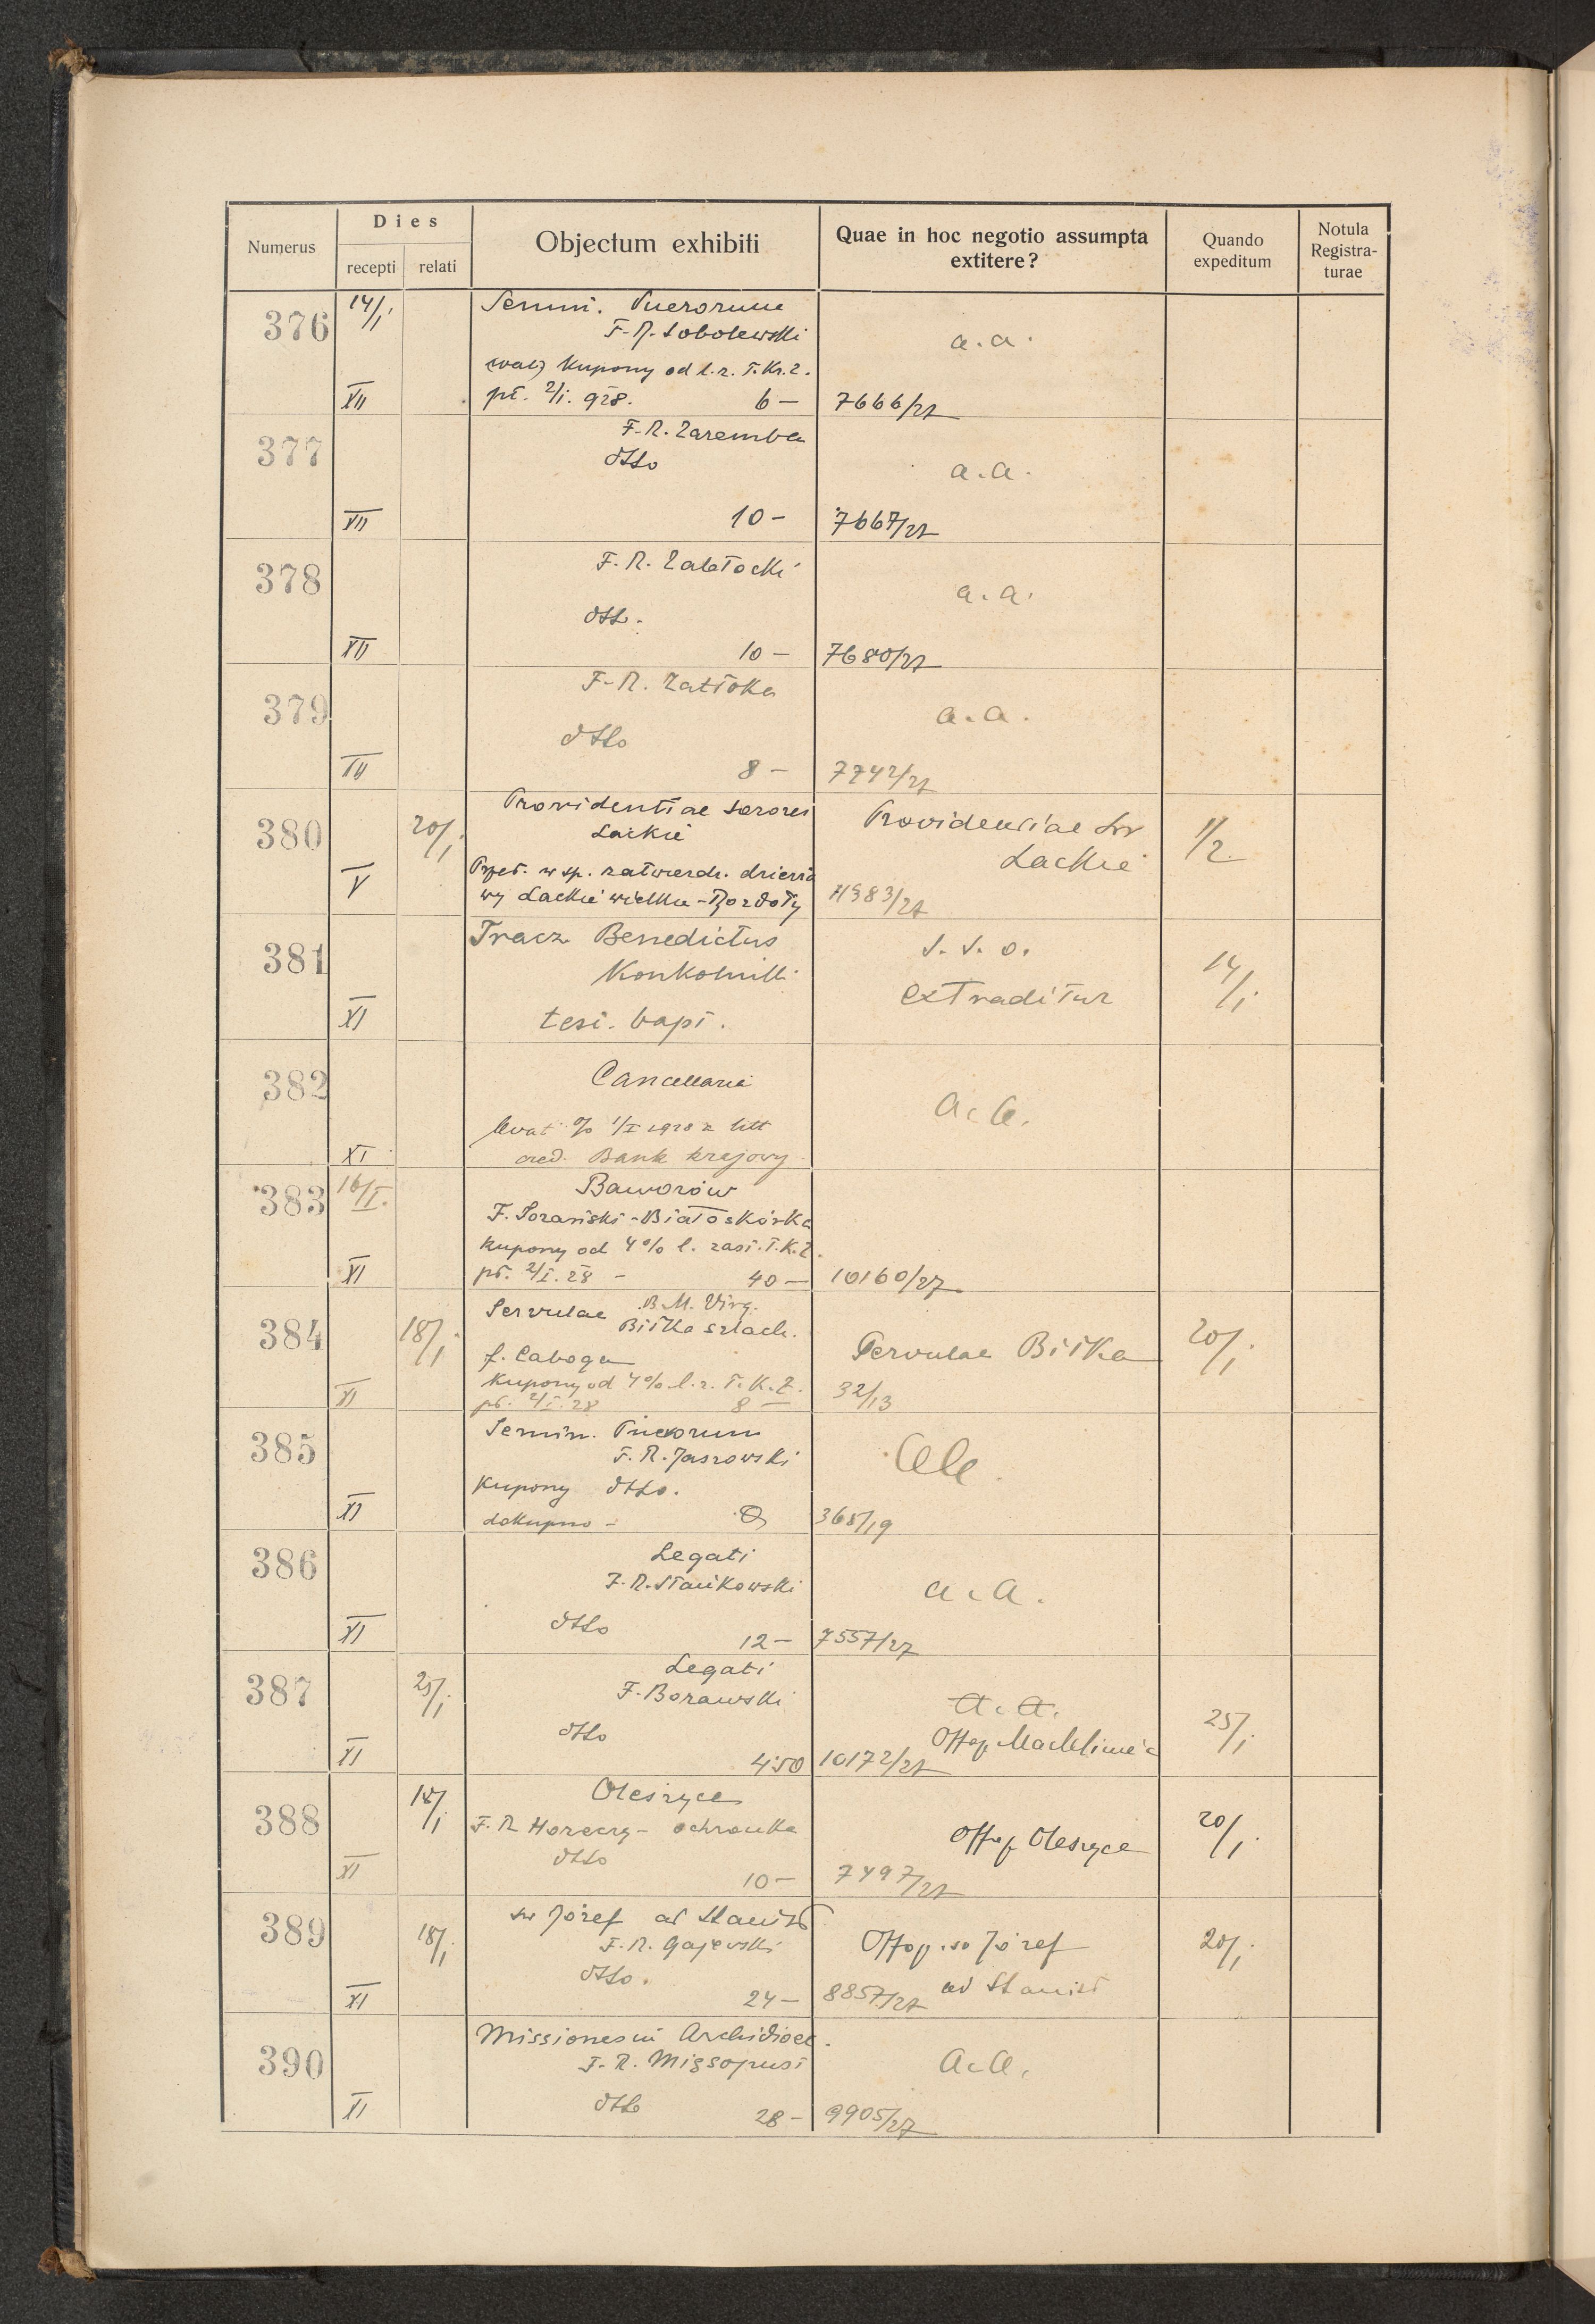 Numerus
Dies
recepti relati
Objectum exhibiti
Quae in hoc negotio assumpta
extitere?
Quando
expeditum
Notula
Registra-
turae
376 14/I
Semin. Puerorum
F. R. Sobolewski
kupony od l. z. T. Kr. Z.
pł. 2/I. 928. 6 —
XII
a. a.
7666/27
377
F. R. Zaremba
dtto
10 —
XII
a. a.
7667/27
378
F. R. Zabłocki
dtto.
10 —
XII
a. a.
7680/27
379
F. R. Zatłoka
dtto
8 —
XII
a. a.
7742/27
380 20/I
Providentiae Sorores
Lackie
w sp. zatwierdz. dzierża
wy Lackie wielkie -
V
Providentiae Srr
Lackie
1/2
381
Tracz Benedictus
Konkolniki
test. bapt.
XI
s. s. o.
extraditur
14/I
382
Cancellaria
levat % 1/I 1928 z litt
cred. Bank krajowy
XI
a. a.
383 16/I.
Baworów
F. Sozański - Białoskórka
kupony od 4% l. zast. T. K. Z.
pł. 2/I. 28 - 40 —
XI
10160/27
384 18/I
Servulae B. M. Virg.
Biłka szlach.
f. Caboga
kupony od 4% l. z. T. K. Z.
pł. 2/I. 28 8 —
XI
Servulae Biłka
32/13
20/I
385
Semin. Puerorum
F. R. Jaszowski
kupony dtto.
dokupno -
XI
aa
365/19
386
Legati
F. R. Stańkowski
dtto
12 —
XI
a. a.
7557/27
387 25/I
Legati
F. Borawski
dtto
4.50
XI
a. a.
10172/27
25/I
388 18/I
Oleszyce
F. R. Horeczy - ochronka
dtto
10 —
XI
Offop Oleszyce
7497/27
20/I
389 18/I
św Józef ad Stanisł
F. R. Gajewski
dtto.
24 —
XI
Offop. św Józef
ad Stanisł
8857/27
20/I
390
Missiones in Archidioec.
F. R. Missopust
dtto
28 —
XI
a. a.
9905/27